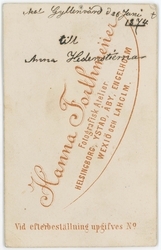 Axel Gyllensvärd 28 Juni
1874
till
Anna Hedenstierna
Hanna Forthmeiier
Fotografisk Atelier
HELSINGBORG, YSTAD, ÅBY, ENGELHOLM
WEXIÖ OCH LANGLM.
Vid efterbeställning uppgifves No